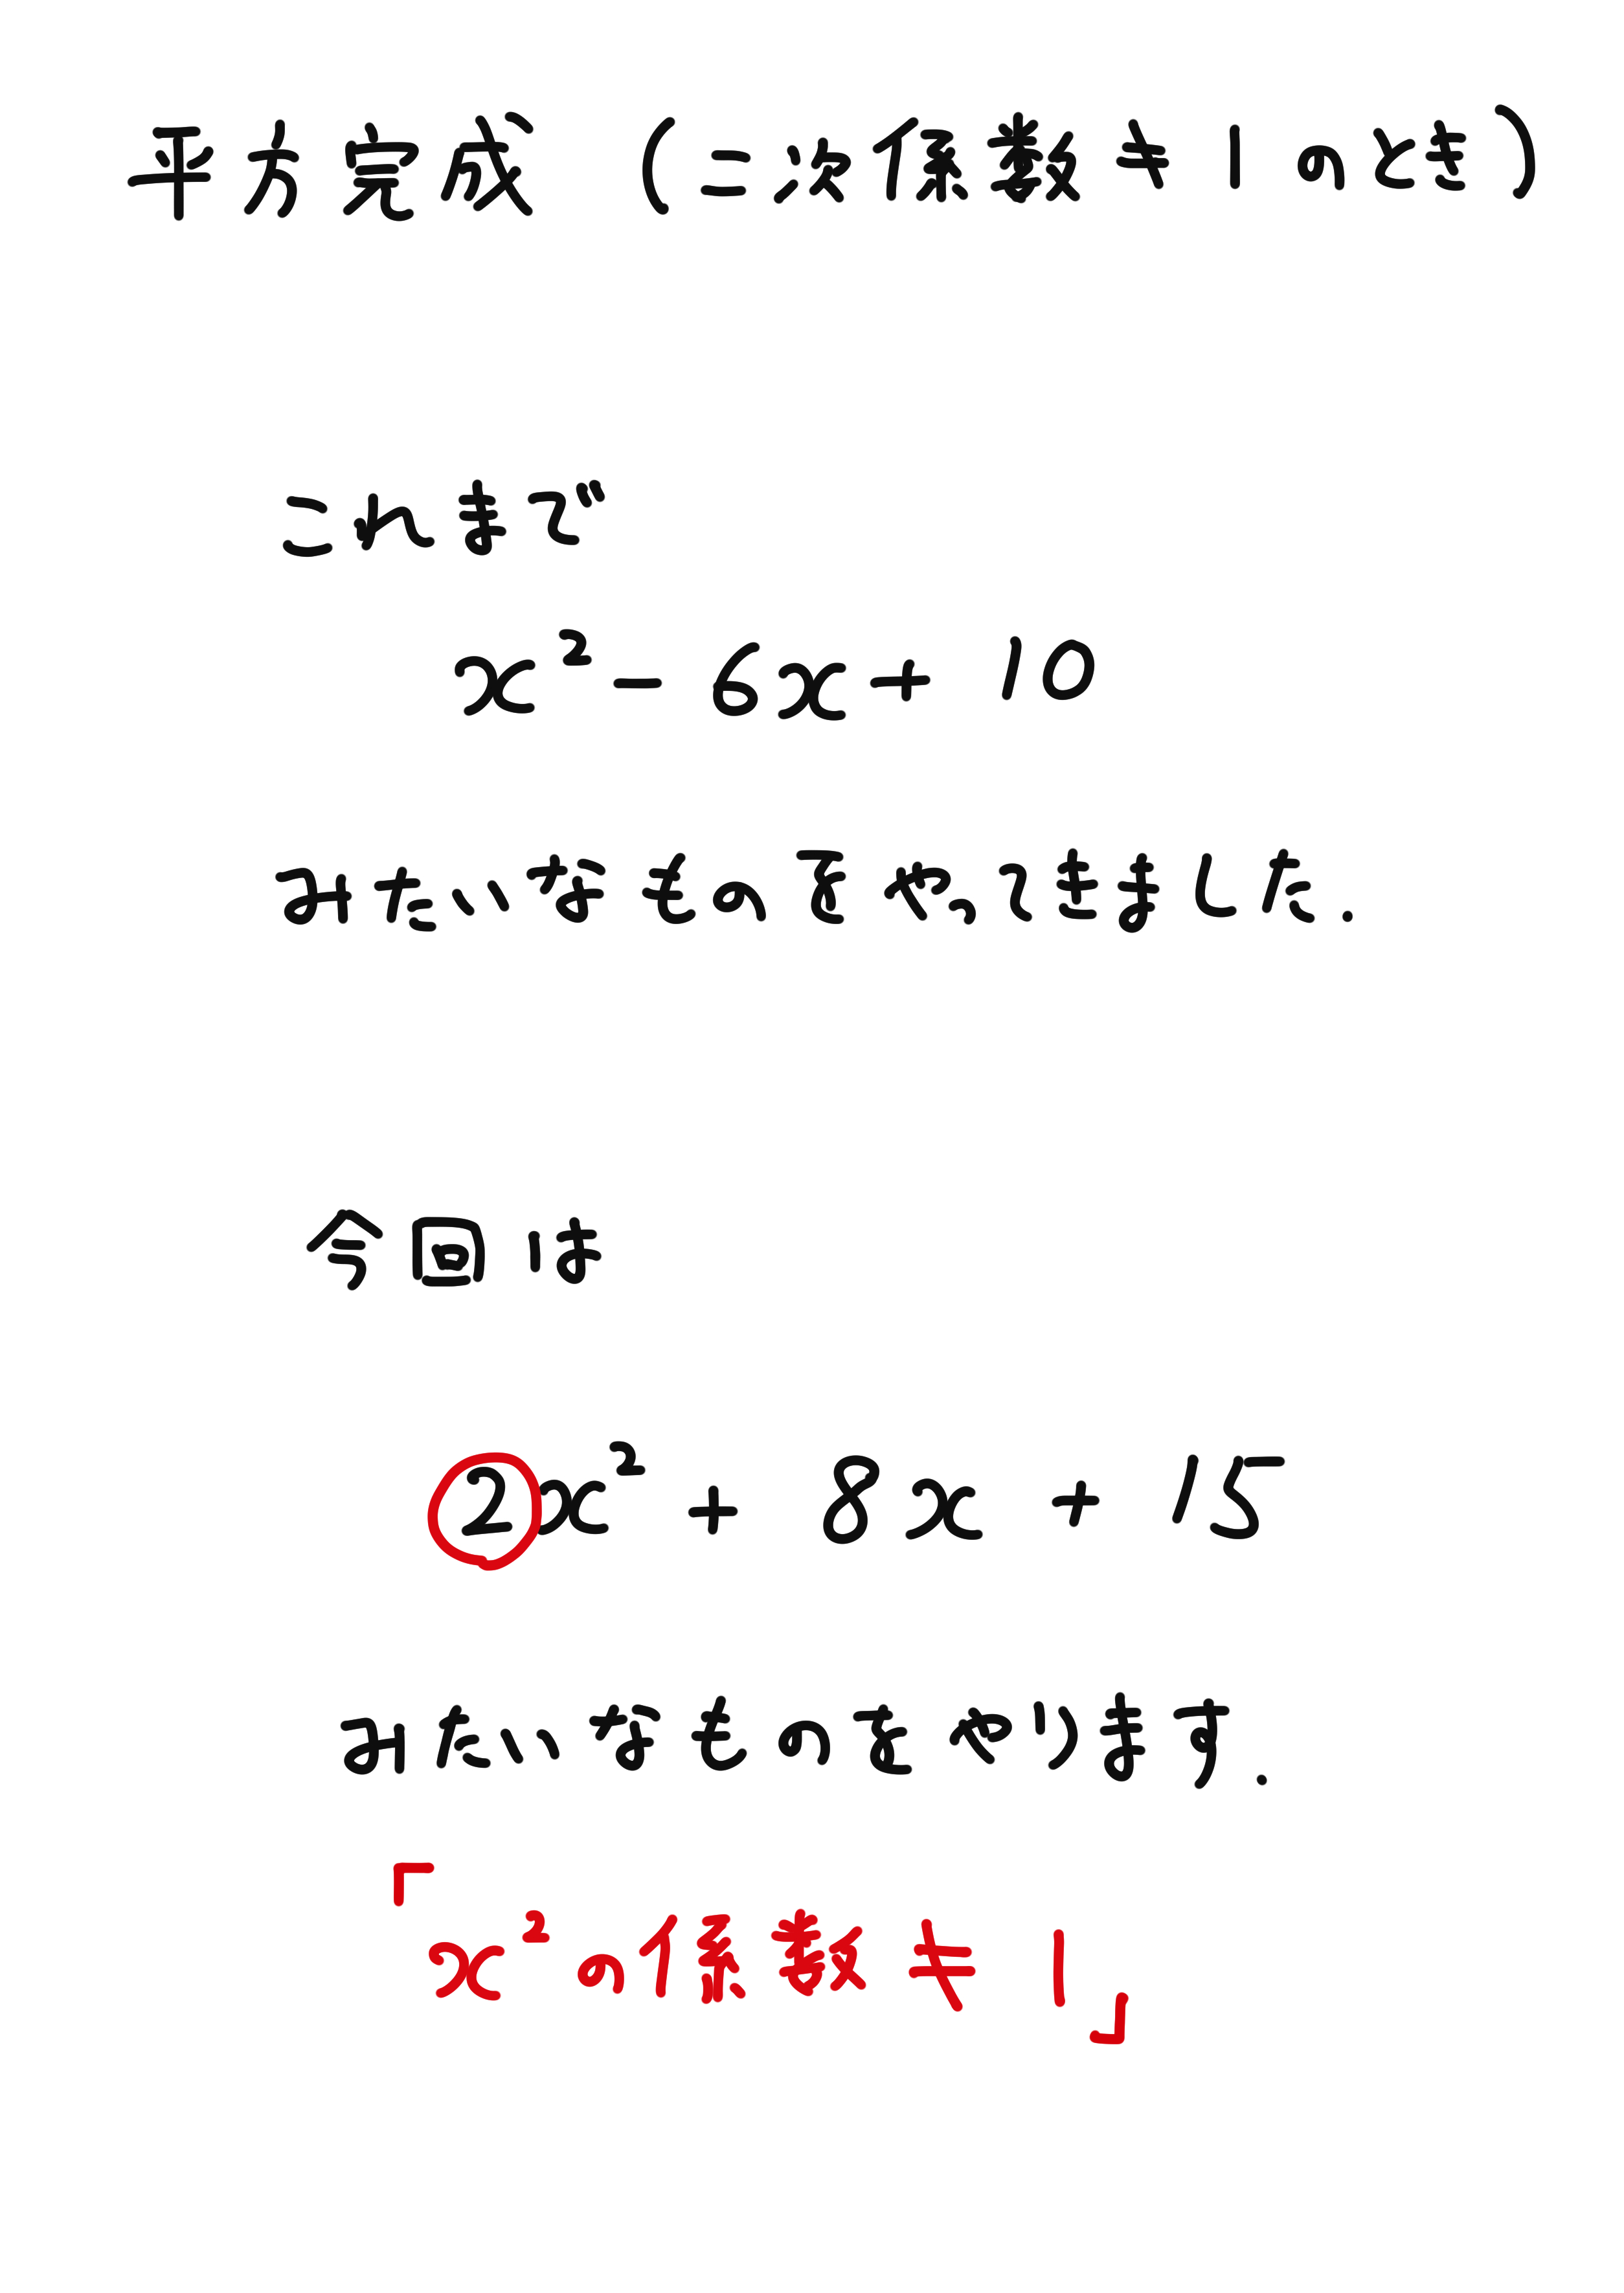 平方完成 (二次係数≠1のとき)
これまで
x²-6x+10
みたいなものをやってきました.
今回は
2x²+8x+15
みたいなものをやります.
「x²の係数≠1」